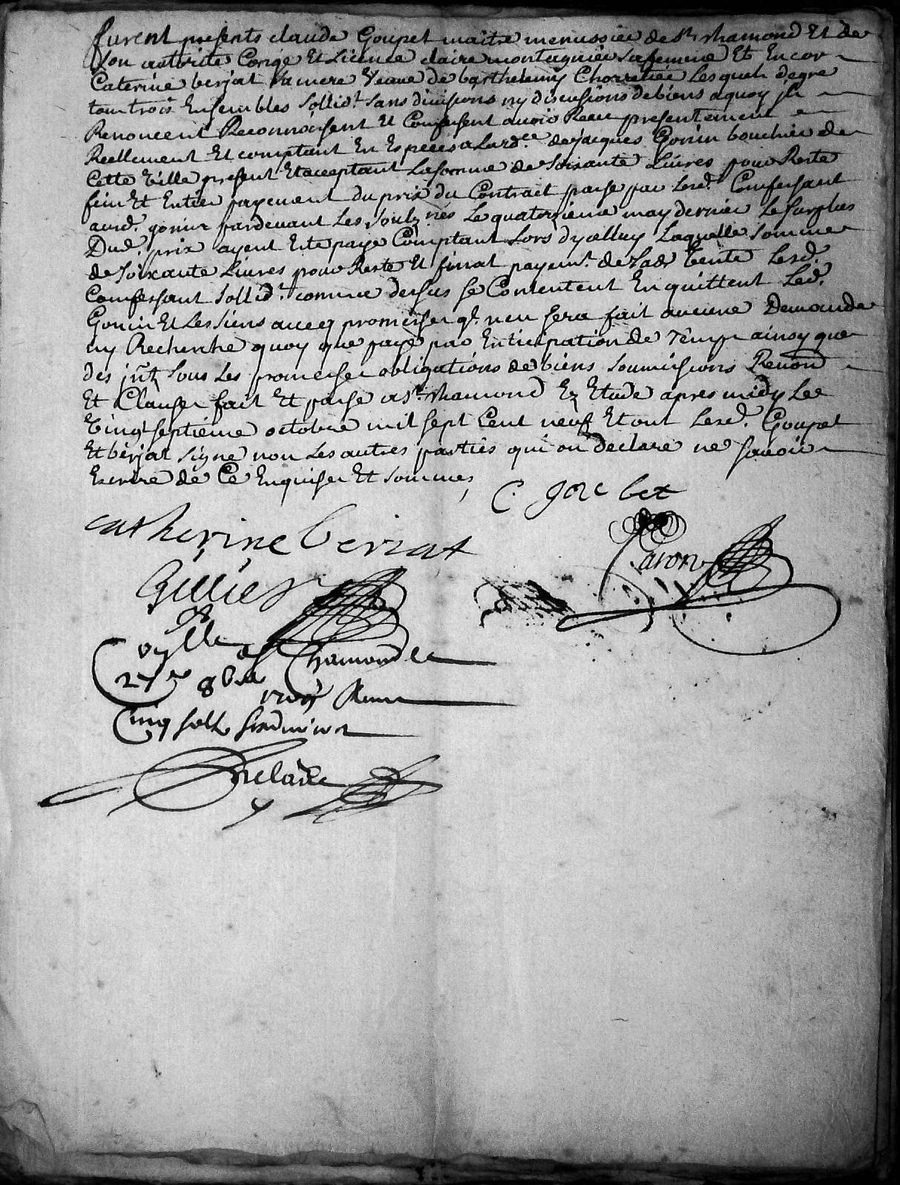 furent presents claude Goupet maitre menussiee de St. chamond Et de
Son authorité Congé Et Licence claire montagnier sa femme Et Encor
Caterine berjat sa mere veuve de barthelemy Chorretiee Lesquels de gré
tous trois Ensembles sollidt. sans divisions ny discussions de biens a quoy ils
Renoncent Reconnoissent Et Confessent avoir Receu presentement
Reellement Et comptant En Especes a Lard.ce de jacques Gonin boucher de
Cette ville present Et acceptant La somme de soixante Livres pour Reste
fin Et Entier payement du prix du Contrat passe par Lesd. Confessant
aud. gonin pardevant Les soub.nes Le quatorzieme may dernier Le surplus
Dud. prix ayent Este paye Comptant Lors dycelluy Laquelle somme
de soixante Livres pour Reste Et final payemt. de Lad. vente Lesd.
Confessant sollidt. comme dessus se Contentent En quittent Led.
Gonin Et Les siens avec promesse q. n'en sera fait aucune Demande
ny Recherche quoy que paye par Enticipation de Temp ainsy que
des jnt. sous Les promesses obligations de biens soumissions Renon
Et Clauses fait Et passe a St. chamond Ez Etude apres midy Le
vingt septieme octobre mil sept Cent neuf Et ont Lesd. Goupet
Et berjat signe non Les autres parties qui on declare ne scavoir
Escrire de Ce Enquises Et sommes
C. gore bet
catherine berzat
Caron
Gillier
Chamond Le
27e 8bre 1709 Receu
Cinq solz